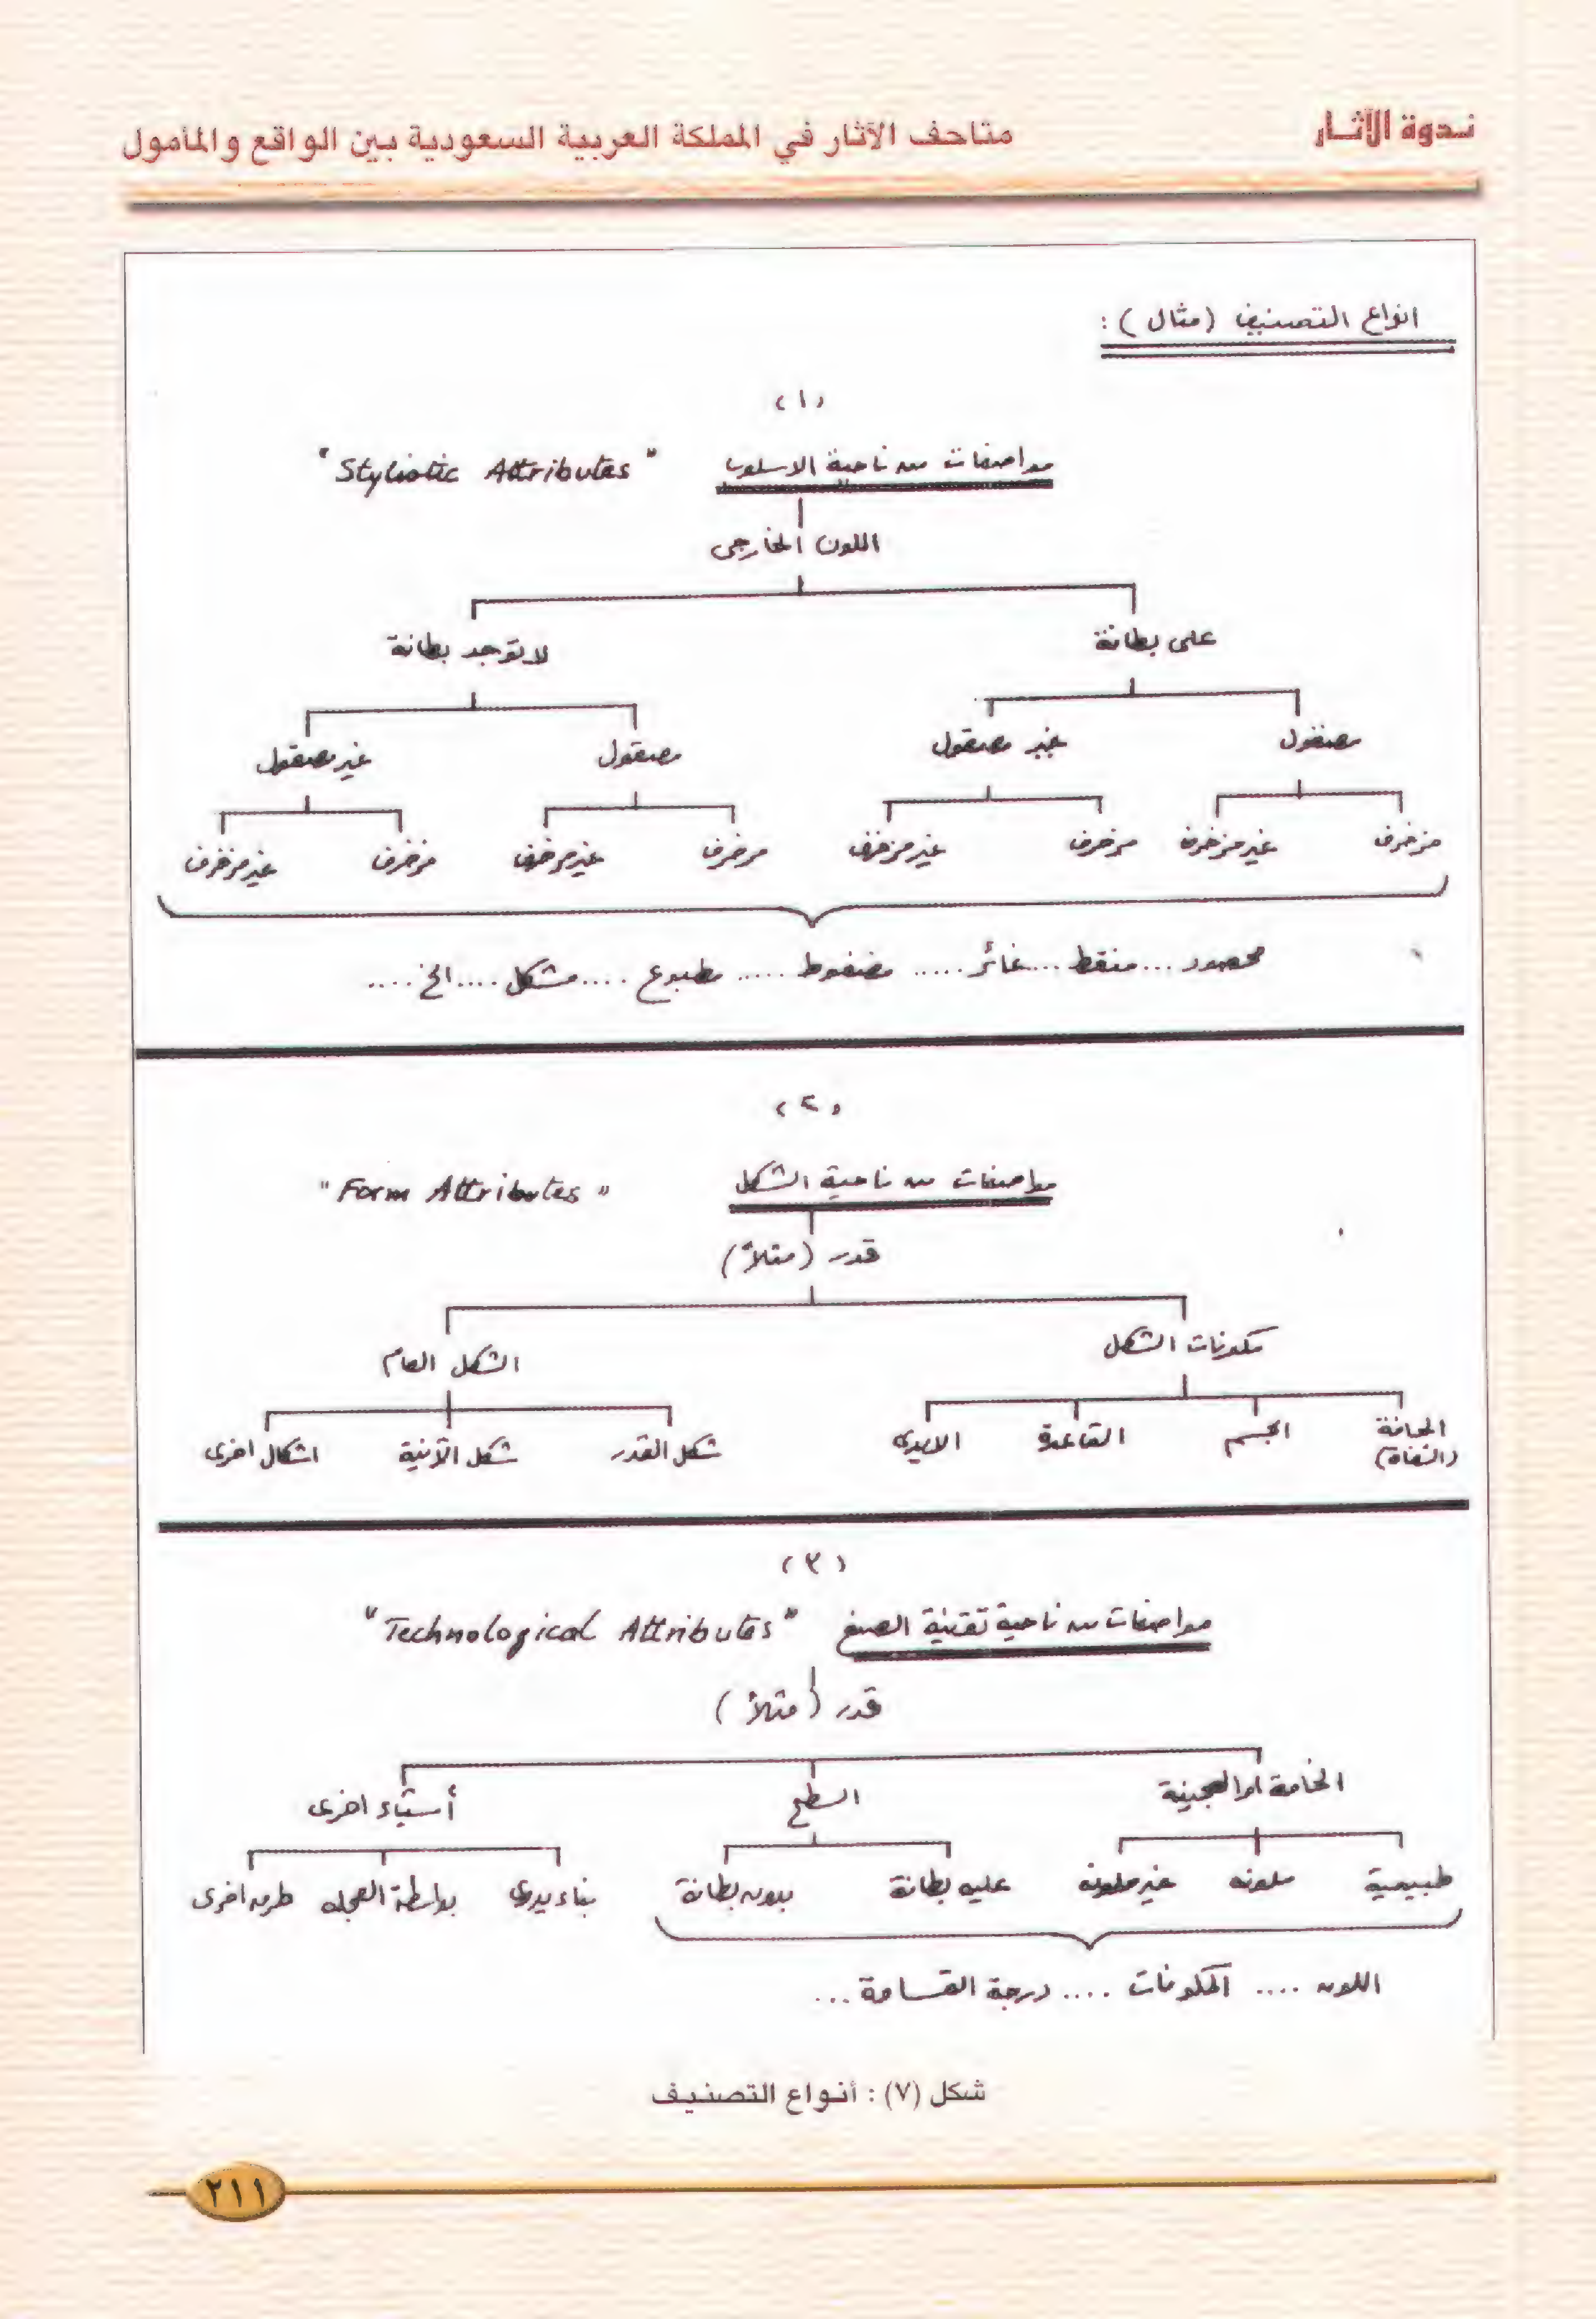 ندوة الآثار
متاحف الآثار في المملكة العربية السعودية بين الواقع والمأمول
انواع التصنيف (مثال) :
(١)
مواصفات من ناحية الاسلوب "Stylistic Attributes"
اللون الخارجى
على بطانة لا توجد بطانة
مصقول غير مصقول مصقول غير مصقول
مزخرف غير مزخرف مزخرف غير مزخرف مزخرف غير مزخرف مزخرف غير مزخرف
محصور ... منقط ... غائر ..... مضغوط ..... مطبوع .... مشكل .... الخ ....
(٢)
مواصفات من ناحية الشكل "Form Attributes"
قدر (مثلاً)
مكونات الشكل الشكل العام
الحافة الجسم القاعدة الايدى شكل القدر شكل الآنية اشكال اخرى
(الشفاة)
(٣)
مواصفات من ناحية تقنية الصنع "Technological Attributes"
قدر (مثلاً)
الخامة او العجينة السطح أشياء اخرى
طبيعية ملونه غير ملونه عليه بطانة بدون بطانة بناء يدوي بواسطة العجله طرق اخرى
اللون .... المكونات .... درجة القسامة ...
شكل (٧) : أنواع التصنيف
٢١١